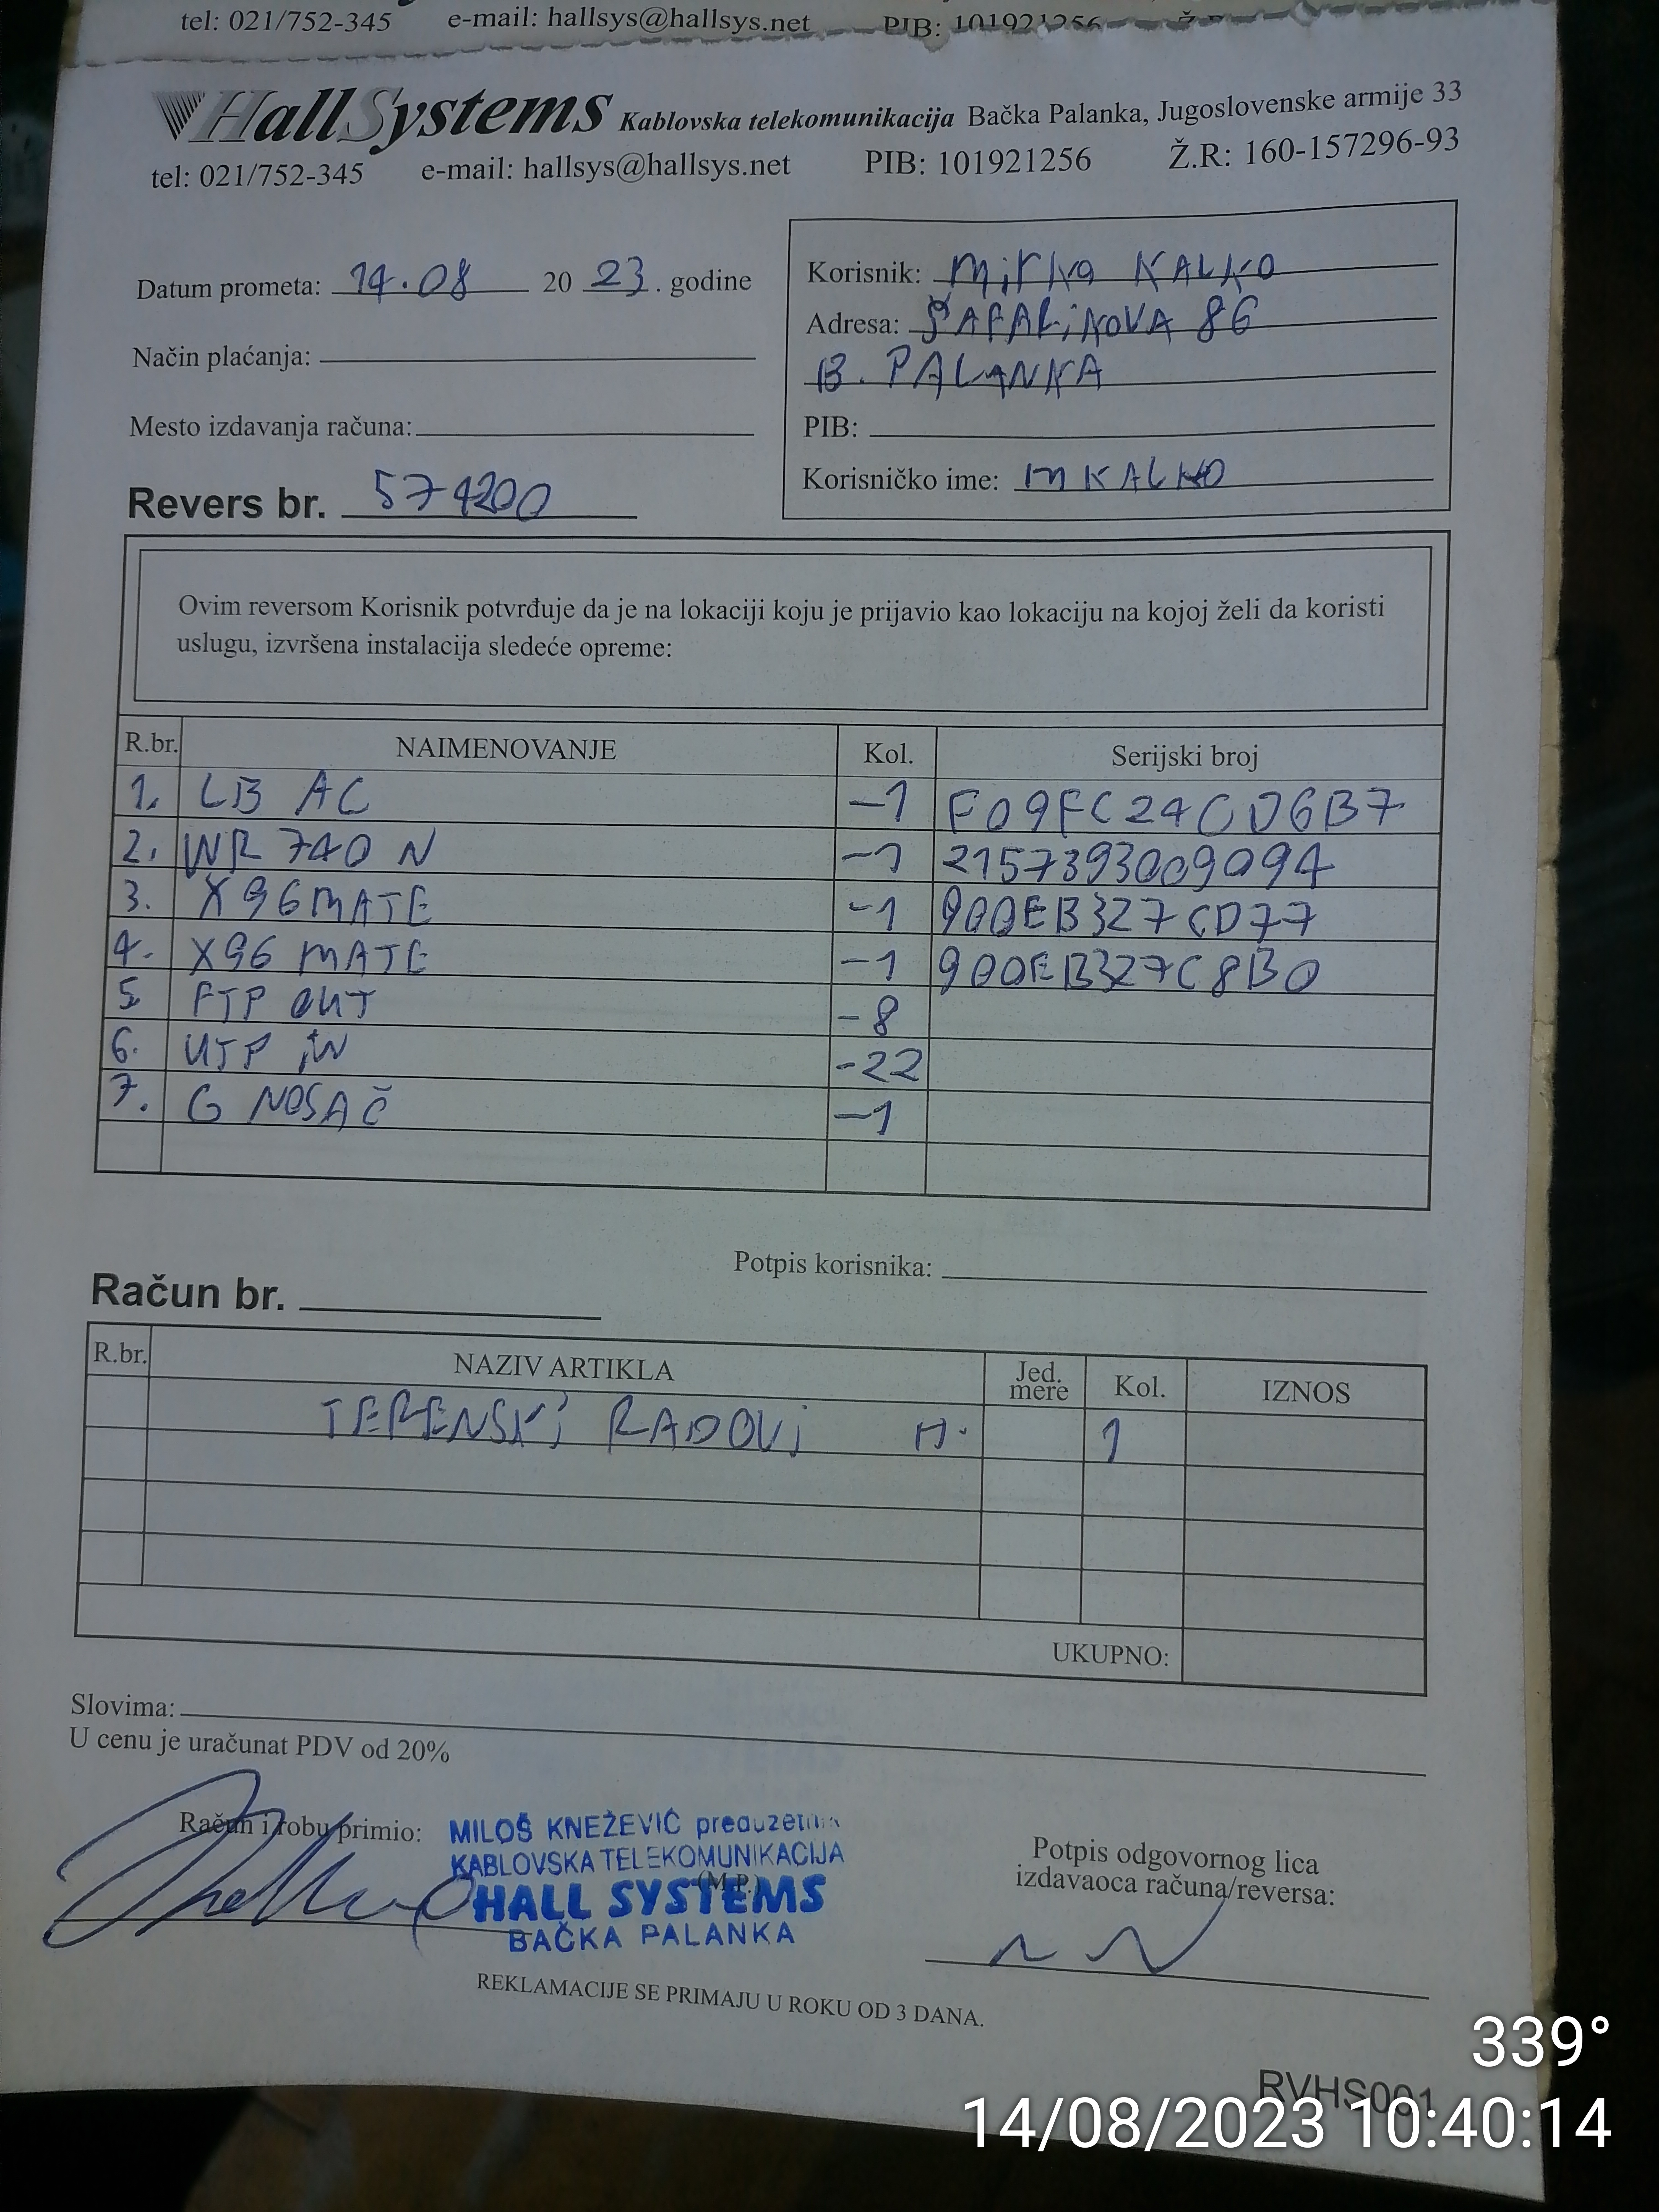 tel: 021/752-345 e-mail: hallsys@hallsys.net PIB: 101921256
HallSystems Kablovska telekomunikacija Bačka Palanka, Jugoslovenske armije 33
tel: 021/752-345 e-mail: hallsys@hallsys.net PIB: 101921256 Ž.R: 160-157296-93
Datum prometa: 14.08 20 23. godine
Način plaćanja:
Mesto izdavanja računa:
Revers br. 574200
Korisnik: Mirko KALKO
Adresa: ŠAFARiKOVA 86
B. PALANKA
PIB:
Korisničko ime: MKALKO
Ovim reversom Korisnik potvrđuje da je na lokaciji koju je prijavio kao lokaciju na kojoj želi da koristi
uslugu, izvršena instalacija sledeće opreme:
R.br. NAIMENOVANJE Kol. Serijski broj
1. LB AC -1 F09FC24CD6B7
2. WR 740 N -1 2157393009094
3. X96MATE -1 900EB327CD77
4. X96 MATE -1 900EB327C8B0
5. FTP OUT -8
6. UTP iN -22
7. G NOSAČ -1
Potpis korisnika:
Račun br.
R.br. NAZIV ARTIKLA Jed. mere Kol. IZNOS
TERENSKi RADOVi H. 1
UKUPNO:
Slovima:
U cenu je uračunat PDV od 20%
Račun i robu primio:
MILOŠ KNEŽEVIĆ preduzetnik
KABLOVSKA TELEKOMUNIKACIJA
(M.P.)
HALL SYSTEMS
BAČKA PALANKA
Potpis odgovornog lica
izdavaoca računa/reversa:
REKLAMACIJE SE PRIMAJU U ROKU OD 3 DANA.
339°
RVHS001
14/08/2023 10:40:14